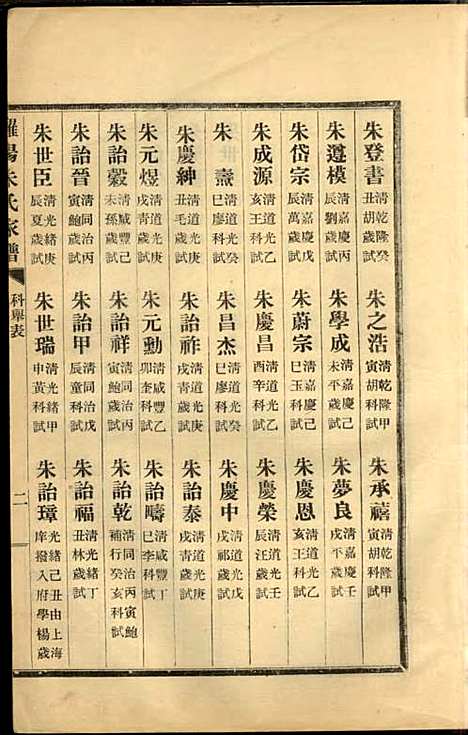 朱登書 清乾隆癸丑胡歲試
朱之浩 清乾隆甲寅胡科試
朱承禧 清乾隆甲寅胡科試
朱遵模 清嘉慶丙辰劉歲試
朱學成 清嘉慶己未平歲試
朱夢良 清嘉慶壬戌平歲試
朱岱宗 清嘉慶戊辰萬歲試
朱蔚宗 清嘉慶己巳玉科試
朱慶恩 清道光乙亥王科試
朱成源 清道光乙亥王科試
朱慶昌 清道光乙酉辛科試
朱慶榮 清道光壬辰汪歲試
朱燾 清道光癸巳廖科試
朱昌杰 清道光癸巳廖科試
朱慶中 清道光戊戌祁歲試
朱慶紳 清道光庚丑毛歲試
朱詒祚 清道光庚戌青歲試
朱詒泰 清道光庚戌青歲試
朱元煜 清道光庚戌青歲試
朱元勳 清咸豐乙卯奎科試
朱詒疇 清咸豐丁巳李科試
朱詒穀 清咸豐己未孫歲試
朱詒祥 清同治丙寅鮑歲試
朱詒乾 清同治丙寅鮑補行癸亥科試
朱詒晉 清同治丙寅鮑歲試
朱詒甲 清同治戊辰童科試
朱詒福 清光緒丁丑林歲試
朱世臣 清光緒庚辰夏歲試
朱世瑞 清光緒甲申黃科試
朱詒璋 光緒己丑由上海庠撥入府學楊歲
羅陽朱氏家譜
科舉表
二